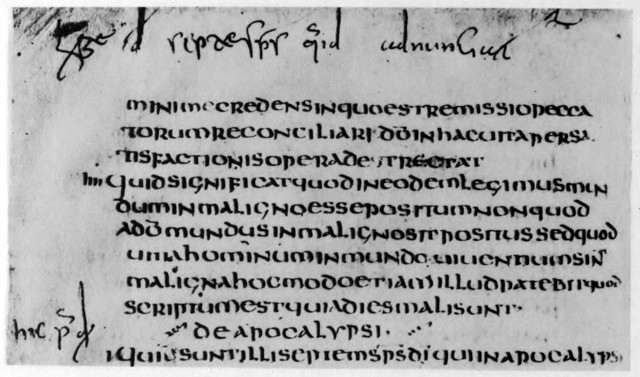 MINIMECREDENSINQUOESTREMISSIOPECCA
TORUMRECONCILIARI D̅O̅INHACUITAPERSA
TISFACTIONISOPERADETRECTAT
IIII QUIDSIGNIFICATQUODINEODEMLEGIMUSMUN
DUMINMALIGNOESSEPOSITUMNONQUOD
AD̅O̅MUNDUSINMALIGNOSITPOSITUSSEDQUOD
UITAHOMINUMINMUNDOUIUENTIUMSIT
MALIGNAHOCMODOETIAMILLUDPATEBITQUOD
SCRIPTUMESTQUIADIESMALISUNT·
DEAPOCALYPSI·
I QUISUNTILLISEPTEMS̅P̅S̅D̅I̅QUIINAPOCALYPSI